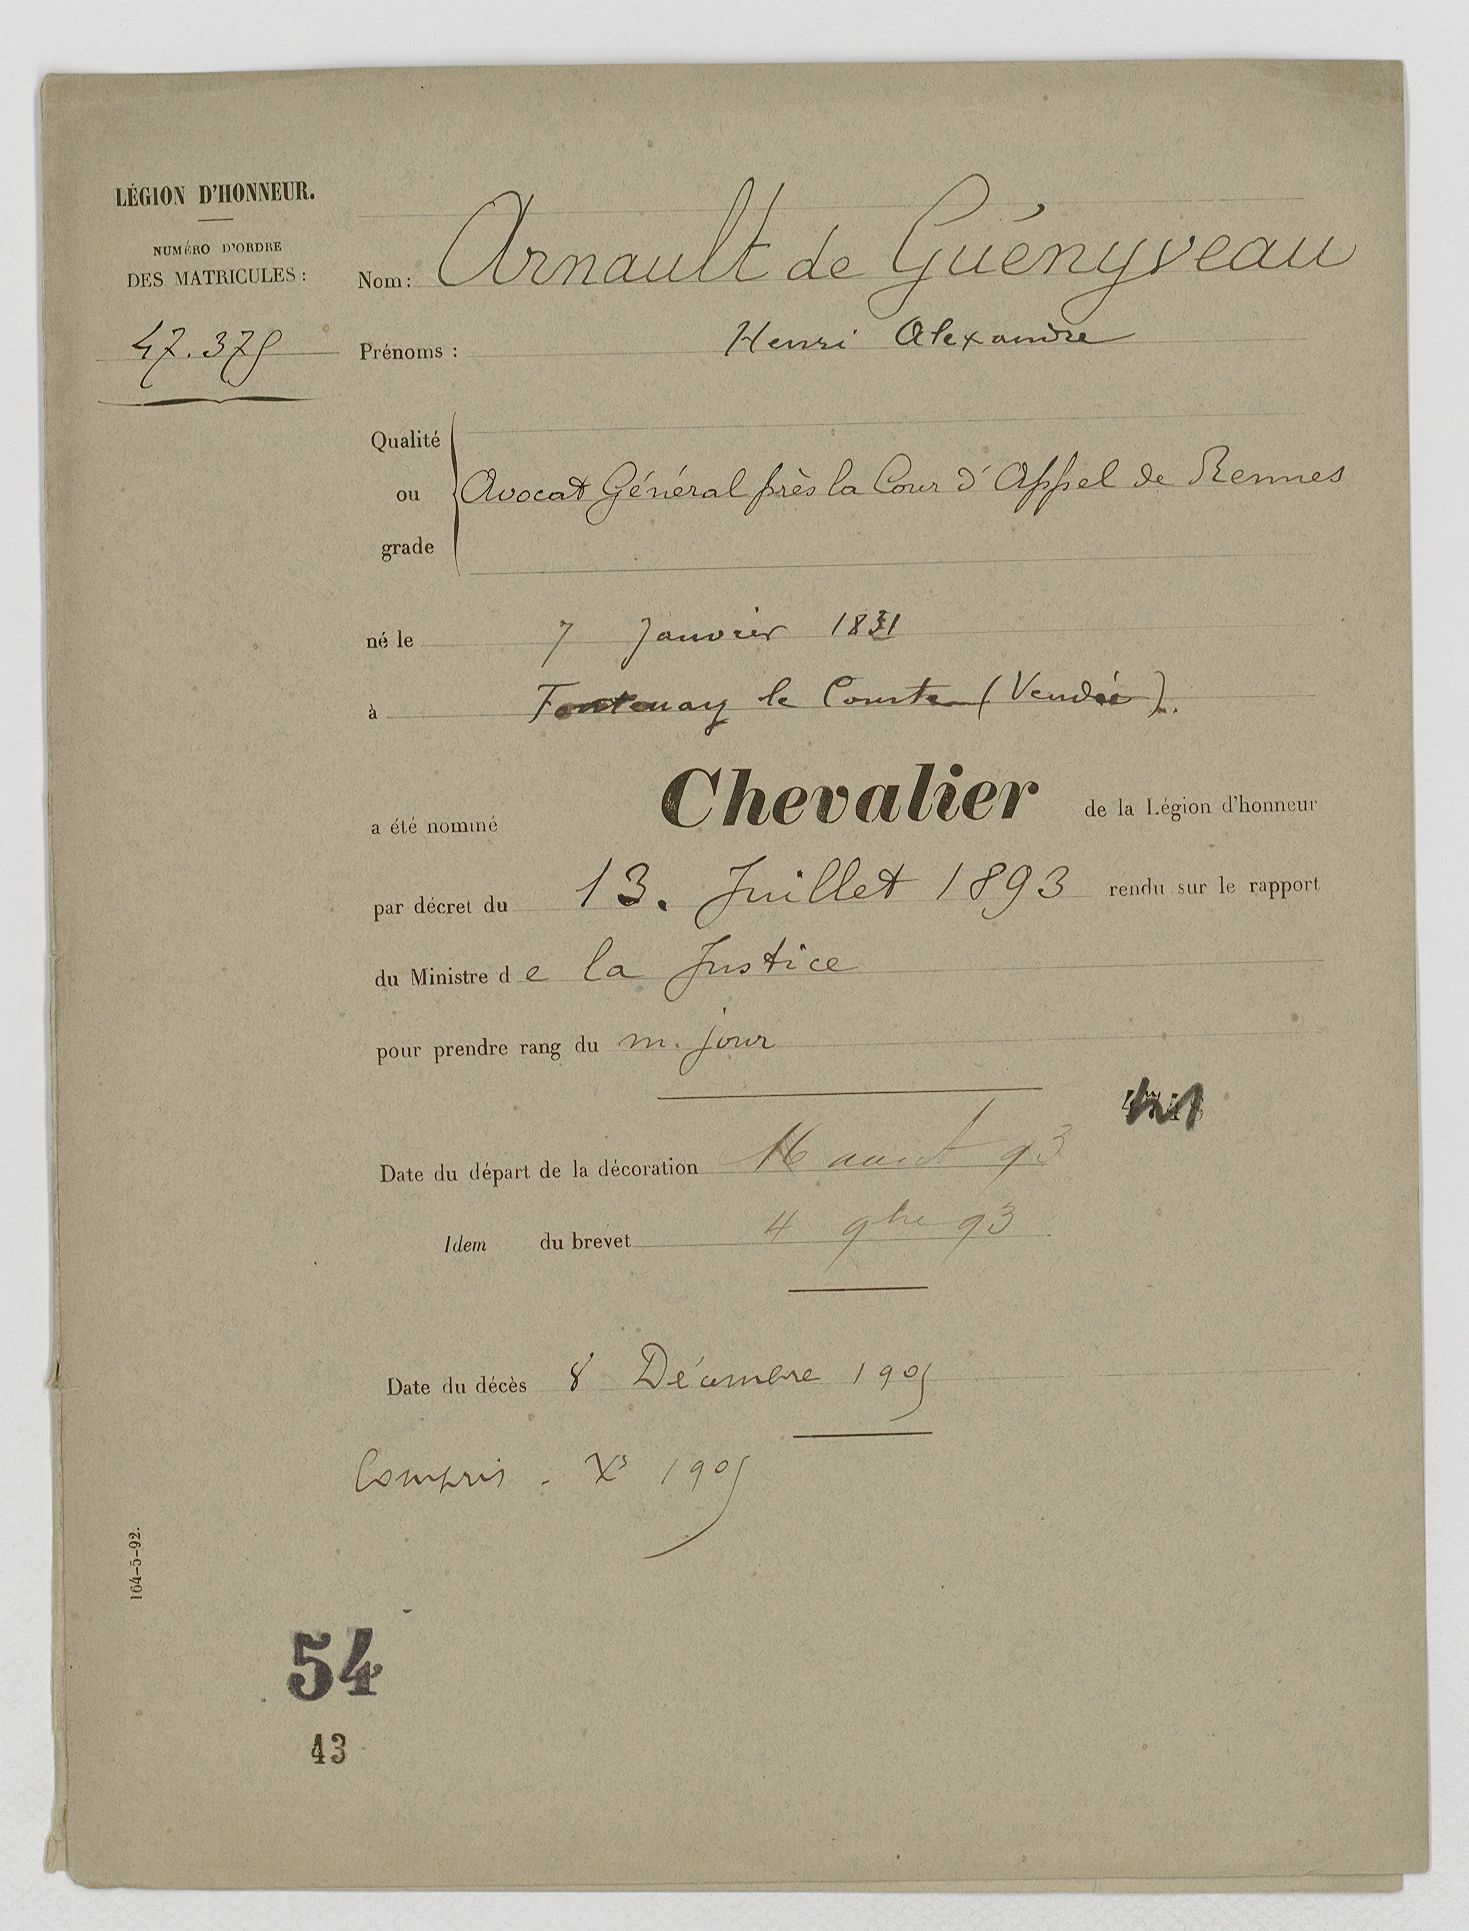 LÉGION D'HONNEUR.
NUMÉRO D'ORDRE
DES MATRICULES:
47.375
Nom: Arnault de Guényveau
Prénoms: Henri Alexandre
Qualité
ou
grade
Avocat Général près la Cour d'Appel de Rennes
né le 7 Janvier 1831
à Fontenay le Comte (Vendée).
a été nommé Chevalier de la Légion d'honneur
par décret du 13. Juillet 1893 rendu sur le rapport
du Ministre de la Justice
pour prendre rang du m. jour
Date du départ de la décoration 16 aout 93
Idem du brevet 4 9bre 93
Date du décès 8 Décembre 1905
Compris. Xe 1905
164-5-92.
54
43